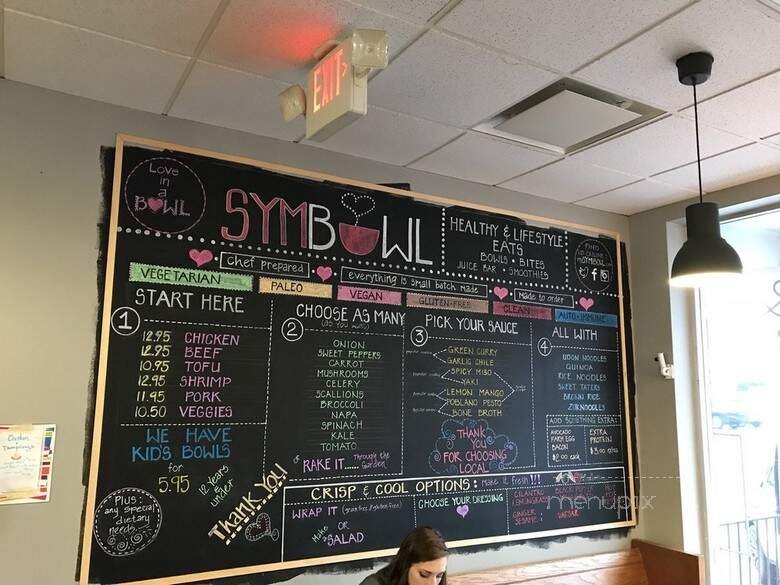 EXIT
LOVE
in
a
BOWL
SYMBOWL
HEALTHY & LIFESTYLE
EATS
BOWLS • BITES
JUICE BAR • SMOOTHIES
FIND
chef prepared
everything is small batch made
made to order
VEGETARIAN
PALEO
VEGAN
GLUTEN-FREE
CLEAN
AUTO-IMMUNE
START HERE
1
12.95 CHICKEN
12.95 BEEF
10.95 TOFU
12.95 SHRIMP
11.95 PORK
10.50 VEGGIES
WE HAVE
KID'S BOWLS
for
5.95
12 Years
under
Plus:
any special
dietary
needs...
Thank You!
CHOOSE AS MANY
(as you want)
2
ONION
SWEET PEPPERS
CARROT
MUSHROOMS
CELERY
SCALLIONS
BROCCOLI
NAPA
SPINACH
KALE
TOMATO
or RAKE IT..... Through the
Garden
PICK YOUR SAUCE
3
GREEN CURRY
GARLIC CHILE
SPICY MISO
YAKI
LEMON MANGO
POBLANO PESTO
BONE BROTH
THANK
YOU
FOR CHOOSING
LOCAL
ALL WITH
4
UDON NOODLES
QUINOA
RICE NOODLES
SWEET TATERS
BROWN RICE
ZUKNOODLES
ADD SOMETHING EXTRA:
AVOCADO
FARM EGG
BACON
EXTRA
PROTEIN
CRISP & COOL OPTIONS: Make it fresh!!!
WRAP IT
OR
Make
a SALAD
CHOOSE YOUR DRESSING
CILANTRO
LEMONGRASS
GINGER
SESAME
CAESAR
menupix